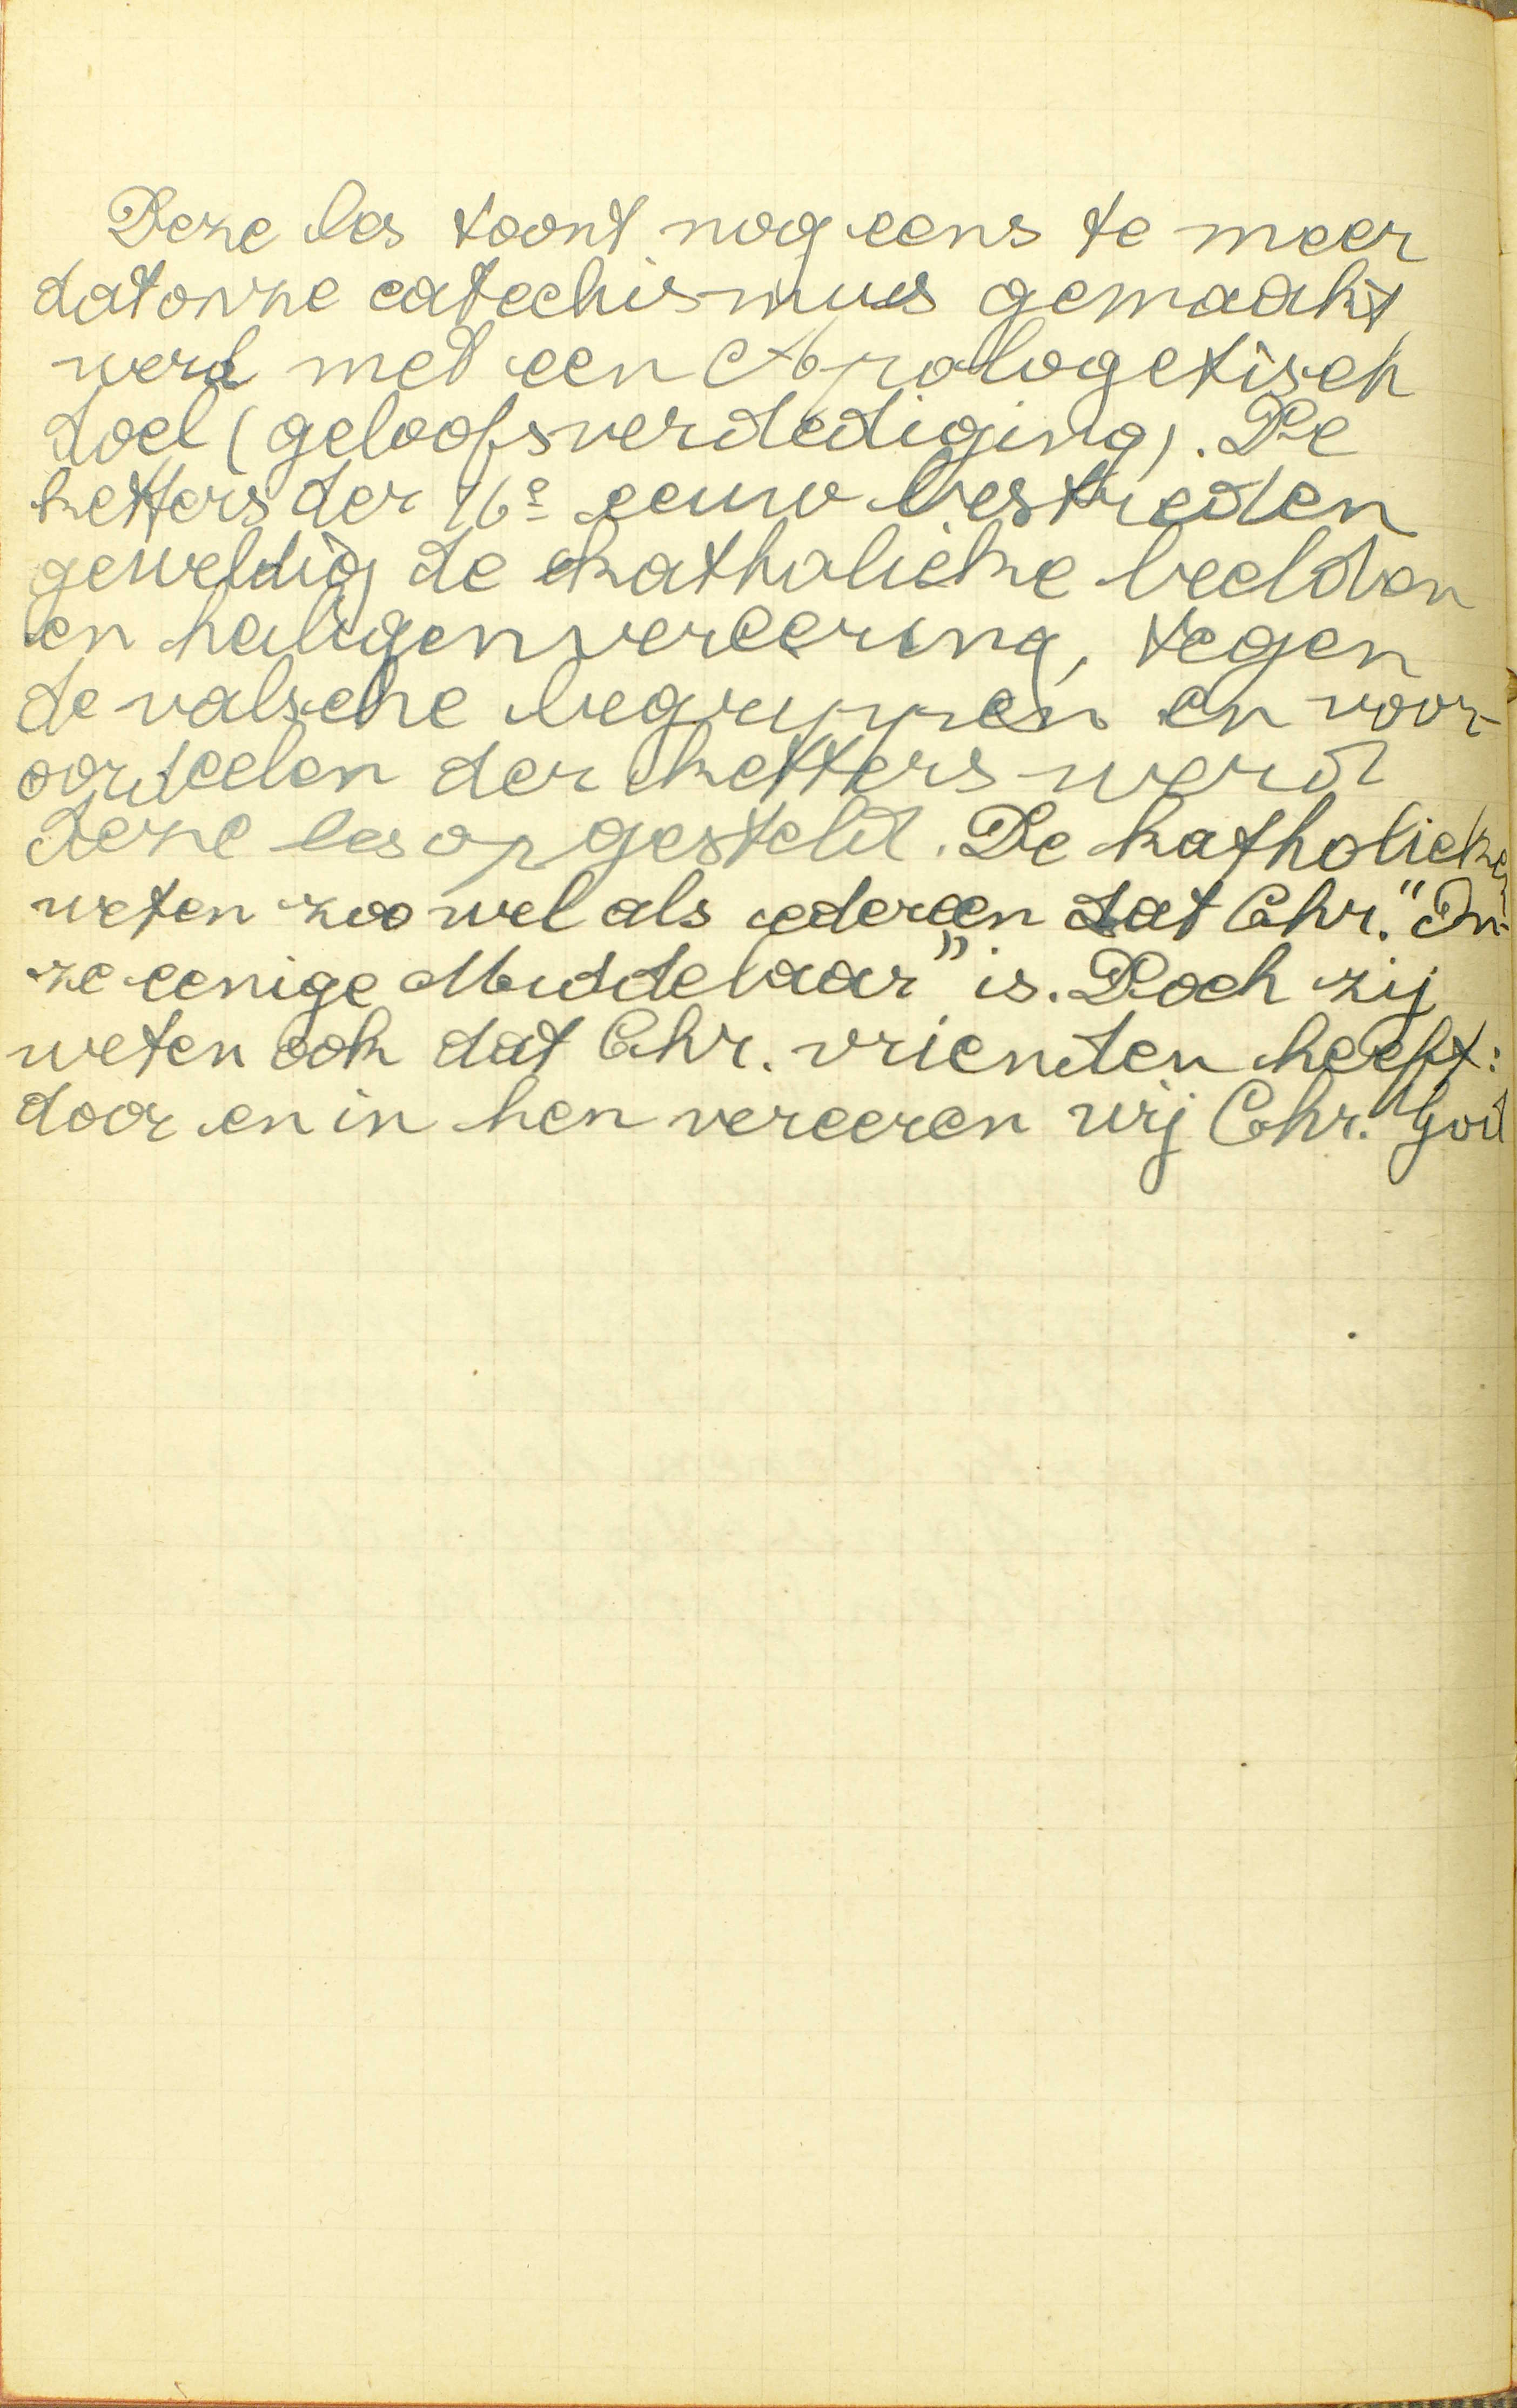 Deze les toont nog eens te meer
dat onze catechismus gemaakt
werd met een Apologetisch
doel (geloofsverdediging). De
ketters der 16e eeuw bestreden
geweldig de katholieke beelden
en heiligenvereering, tegen
de valsche begrippen en voor-
oordeelen der ketters werd
deze les opgesteld. De katholieken
weten zoowel als iedereen dat Chr. "On-
ze eenige Middelaar" is. Doch zij
weten ook dat Chr. vrienden heeft:
door en in hen vereeren wij Chr. God